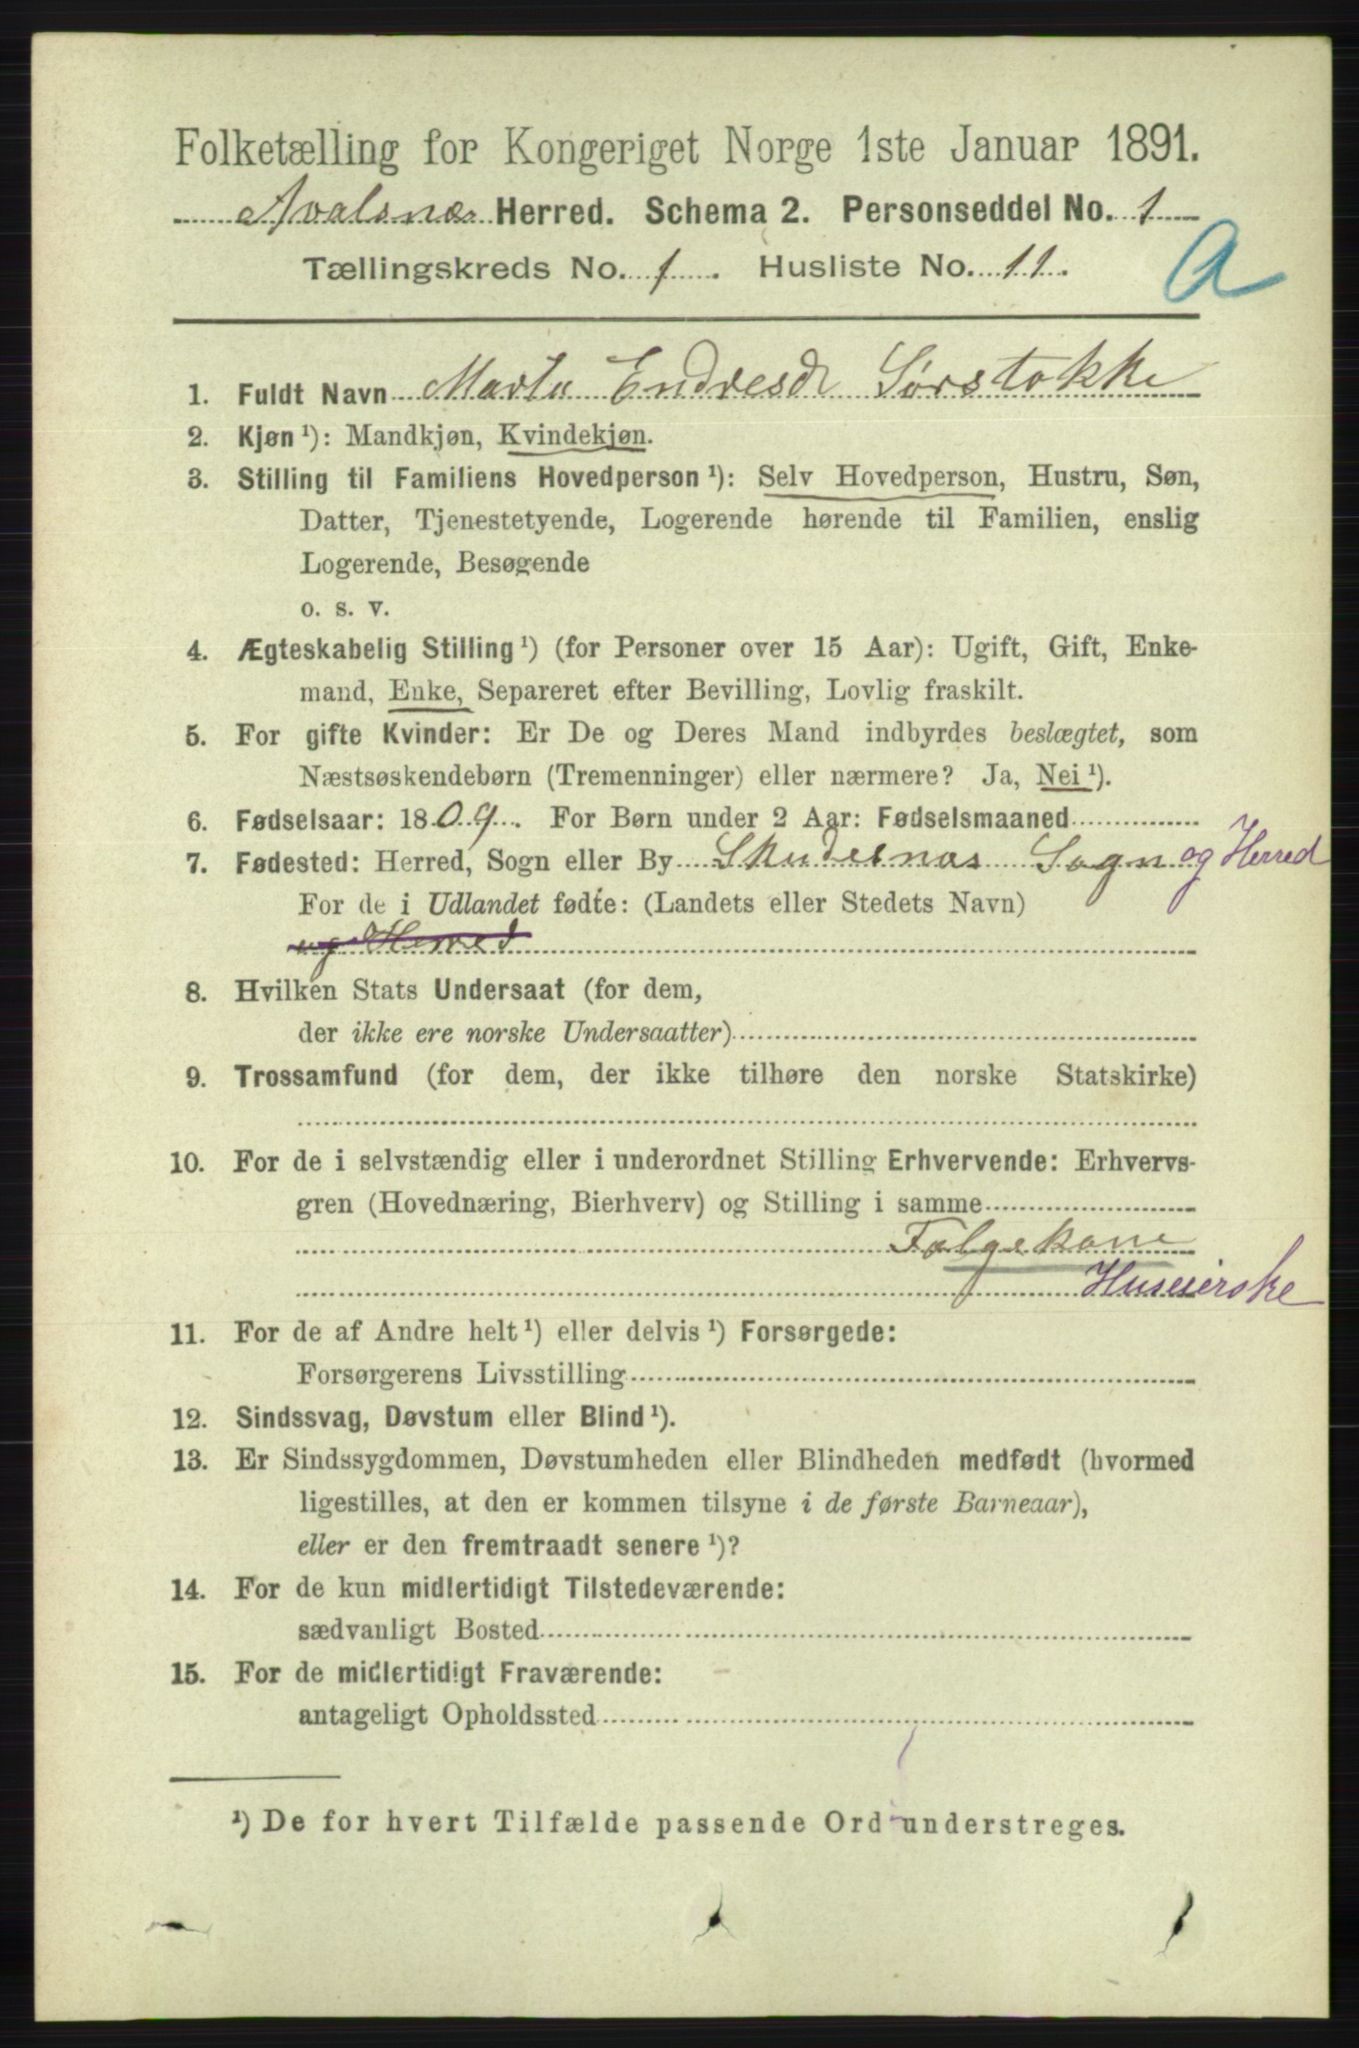 Folketælling for Kongeriget Norge 1ste Januar 1891.
Avalsnæs Herred. Schema 2. Personseddel No. 1
Tællingskreds No. 1. Husliste No. 11.
A
1. Fuldt Navn Marta Endresdr Sørstokke
2. Kjøn ¹): Mandkjøn, Kvindekjøn.
3. Stilling til Familiens Hovedperson ¹): Selv Hovedperson, Hustru, Søn,
Datter, Tjenestetyende, Logerende hørende til Familien, enslig
Logerende, Besøgende
o. s. v.
4. Ægteskabelig Stilling ¹) (for Personer over 15 Aar): Ugift, Gift, Enke-
mand, Enke, Separeret efter Bevilling, Lovlig fraskilt.
5. For gifte Kvinder: Er De og Deres Mand indbyrdes beslægtet, som
Næstsøskendebørn (Tremenninger) eller nærmere? Ja, Nei ¹).
6. Fødselsaar: 1809. For Børn under 2 Aar: Fødselsmaaned
7. Fødested: Herred, Sogn eller By Skudesnæs Sogn og Herred
For de i Udlandet fødte: (Landets eller Stedets Navn)
og Herred
8. Hvilken Stats Undersaat (for dem,
der ikke ere norske Undersaatter)
9. Trossamfund (for dem, der ikke tilhøre den norske Statskirke)
10. For de i selvstændig eller i underordnet Stilling Erhvervende: Erhvervs-
gren (Hovednæring, Bierhverv) og Stilling i samme
Følgekone
Huseierske
11. For de af Andre helt ¹) eller delvis ¹) Forsørgede:
Forsørgerens Livsstilling
12. Sindssvag, Døvstum eller Blind ¹).
13. Er Sindssygdommen, Døvstumheden eller Blindheden medfødt (hvormed
ligestilles, at den er kommen tilsyne i de første Barneaar),
eller er den fremtraadt senere ¹)?
14. For de kun midlertidigt Tilstedeværende:
sædvanligt Bosted
15. For de midlertidigt Fraværende:
antageligt Opholdssted
¹) De for hvert Tilfælde passende Ord understreges.